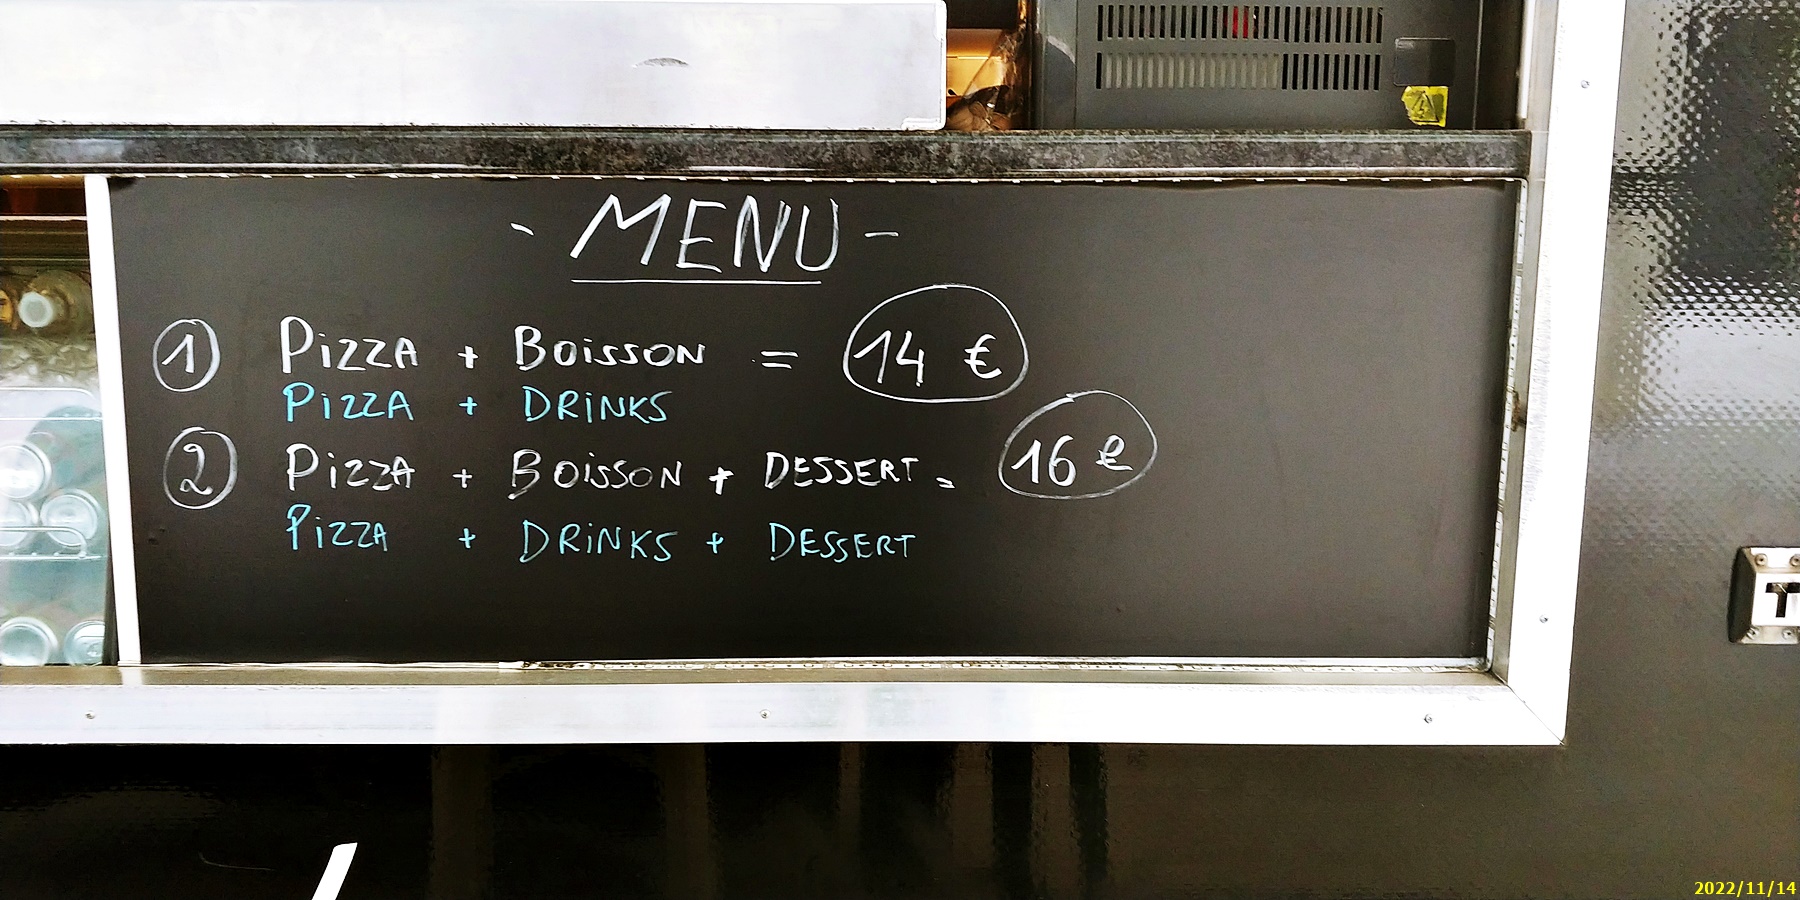 - MENU -
1 PIZZA + BOISSON = 14 €
PIZZA + DRINKS
2 PIZZA + BOISSON + DESSERT = 16 €
PIZZA + DRINKS + DESSERT
T
2022/11/14